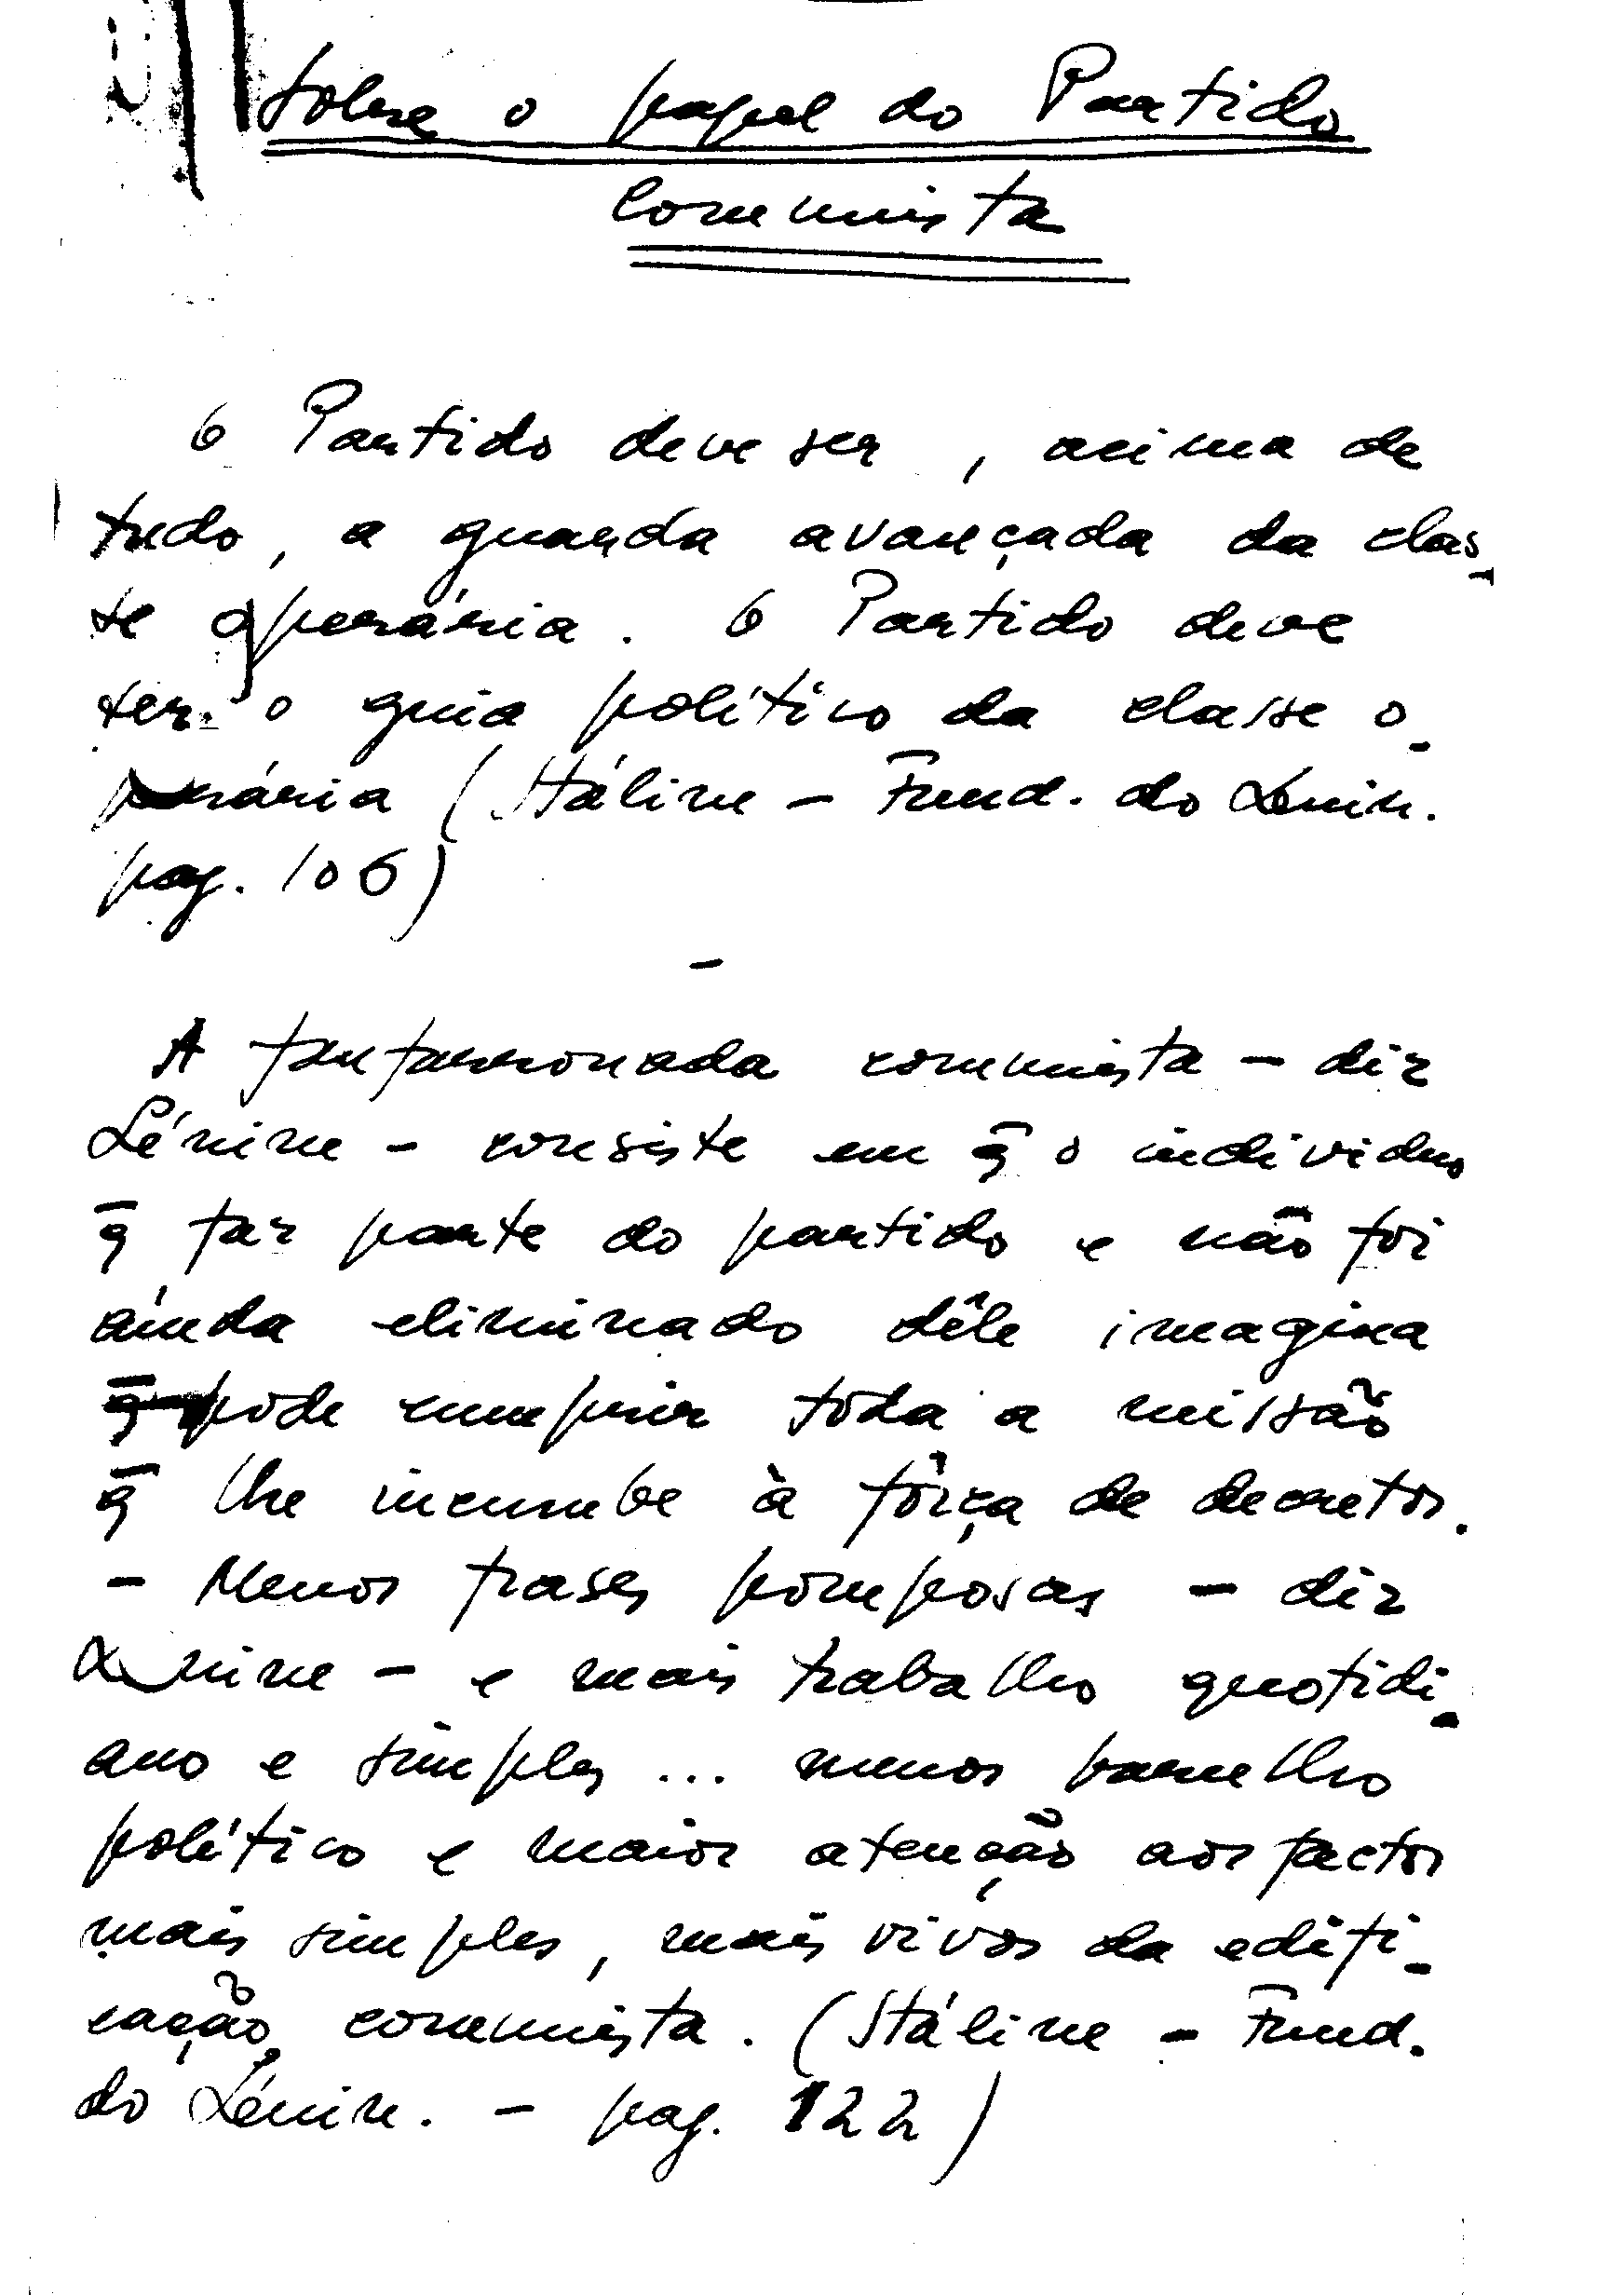 Sobre o papel do Partido
Comunista
O Partido deve ser, acima de
tudo, a guarda avançada da clas_
se operária. O Partido deve
ser o guia político da classe o_
perária (Stáline - Fund. do Lenin.
pag. 106)
-
A fanfarronada comunista - diz
Lénine - consiste em q̄ o indivíduo
q̄ faz parte do partido e não foi
ainda eliminado dêle imagina
q̄ pode cumprir toda a missão
q̄ lhe incumbe à fôrça de decretos.
- Menos frases pomposas - diz
Lenine - e mais trabalho quotidi_
ano e simples ... menos
político e maior atenção aos factos
mais simples, mais vivos da edifi_
cação comunista. (Stáline - Fund.
do Lénin. - pag. 122)